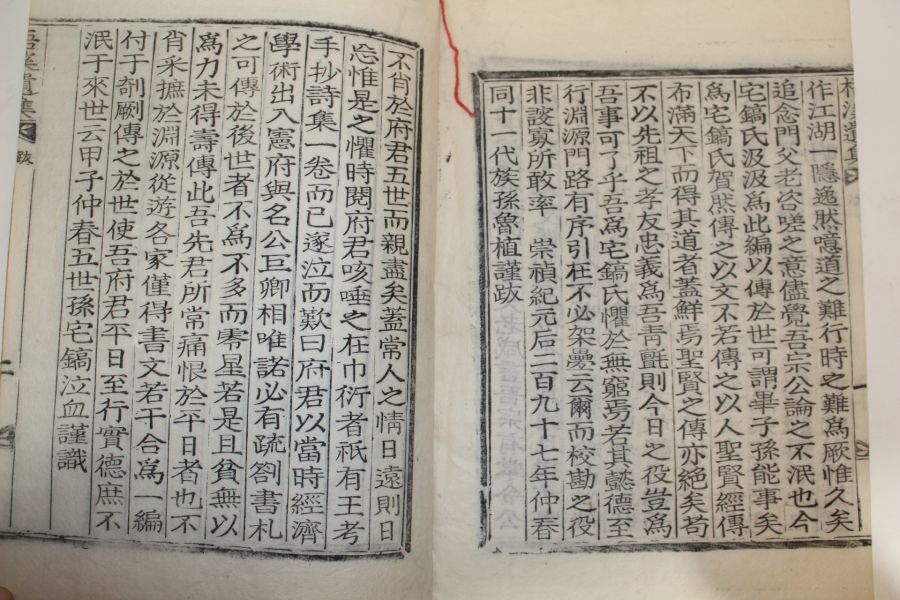 作江湖一隱逸然噫道之難行時之難爲厥惟久矣
追念門父老咨嗟之意儘覺吾宗公論之不泯也今
宅鎬氏汲汲爲此編以傳於世可謂畢子孫能事矣
爲宅鎬氏賀然傳之以文不若傳之以人聖賢經傳
布滿天下而得其道者蓋鮮焉聖賢之傳亦絶矣苟
不以先祖之孝友忠義爲吾靑氈則今日之役豈爲
吾事可了乎吾爲宅鎬氏懼於無窮焉若其懿德至
行淵源門路有序引在不必架疊云爾而校勘之役
非諓寡所敢率 崇禎紀元后二百九十七年仲春
同十一代族孫魯植謹跋
不肖於府君五世而親盡矣蓋常人之情日遠則日
忘惟是之懼時閱府君咳唾之在巾衍者祇有王考
手抄詩集一卷而已遂泣而歎曰府君以當時經濟
學術出入憲府與名公巨卿相唯諾必有疏劄書札
之可傳於後世者不爲不多而零星若是且貧無以
爲力未得壽傳此吾先君所常痛恨於平日者也不
肖采摭於淵源從遊各家僅得書文若干合爲一編
付于剞劂傳之於世使吾府君平日至行實德庶不
泯于來世云甲子仲春五世孫宅鎬泣血謹識
遺集 跋
二